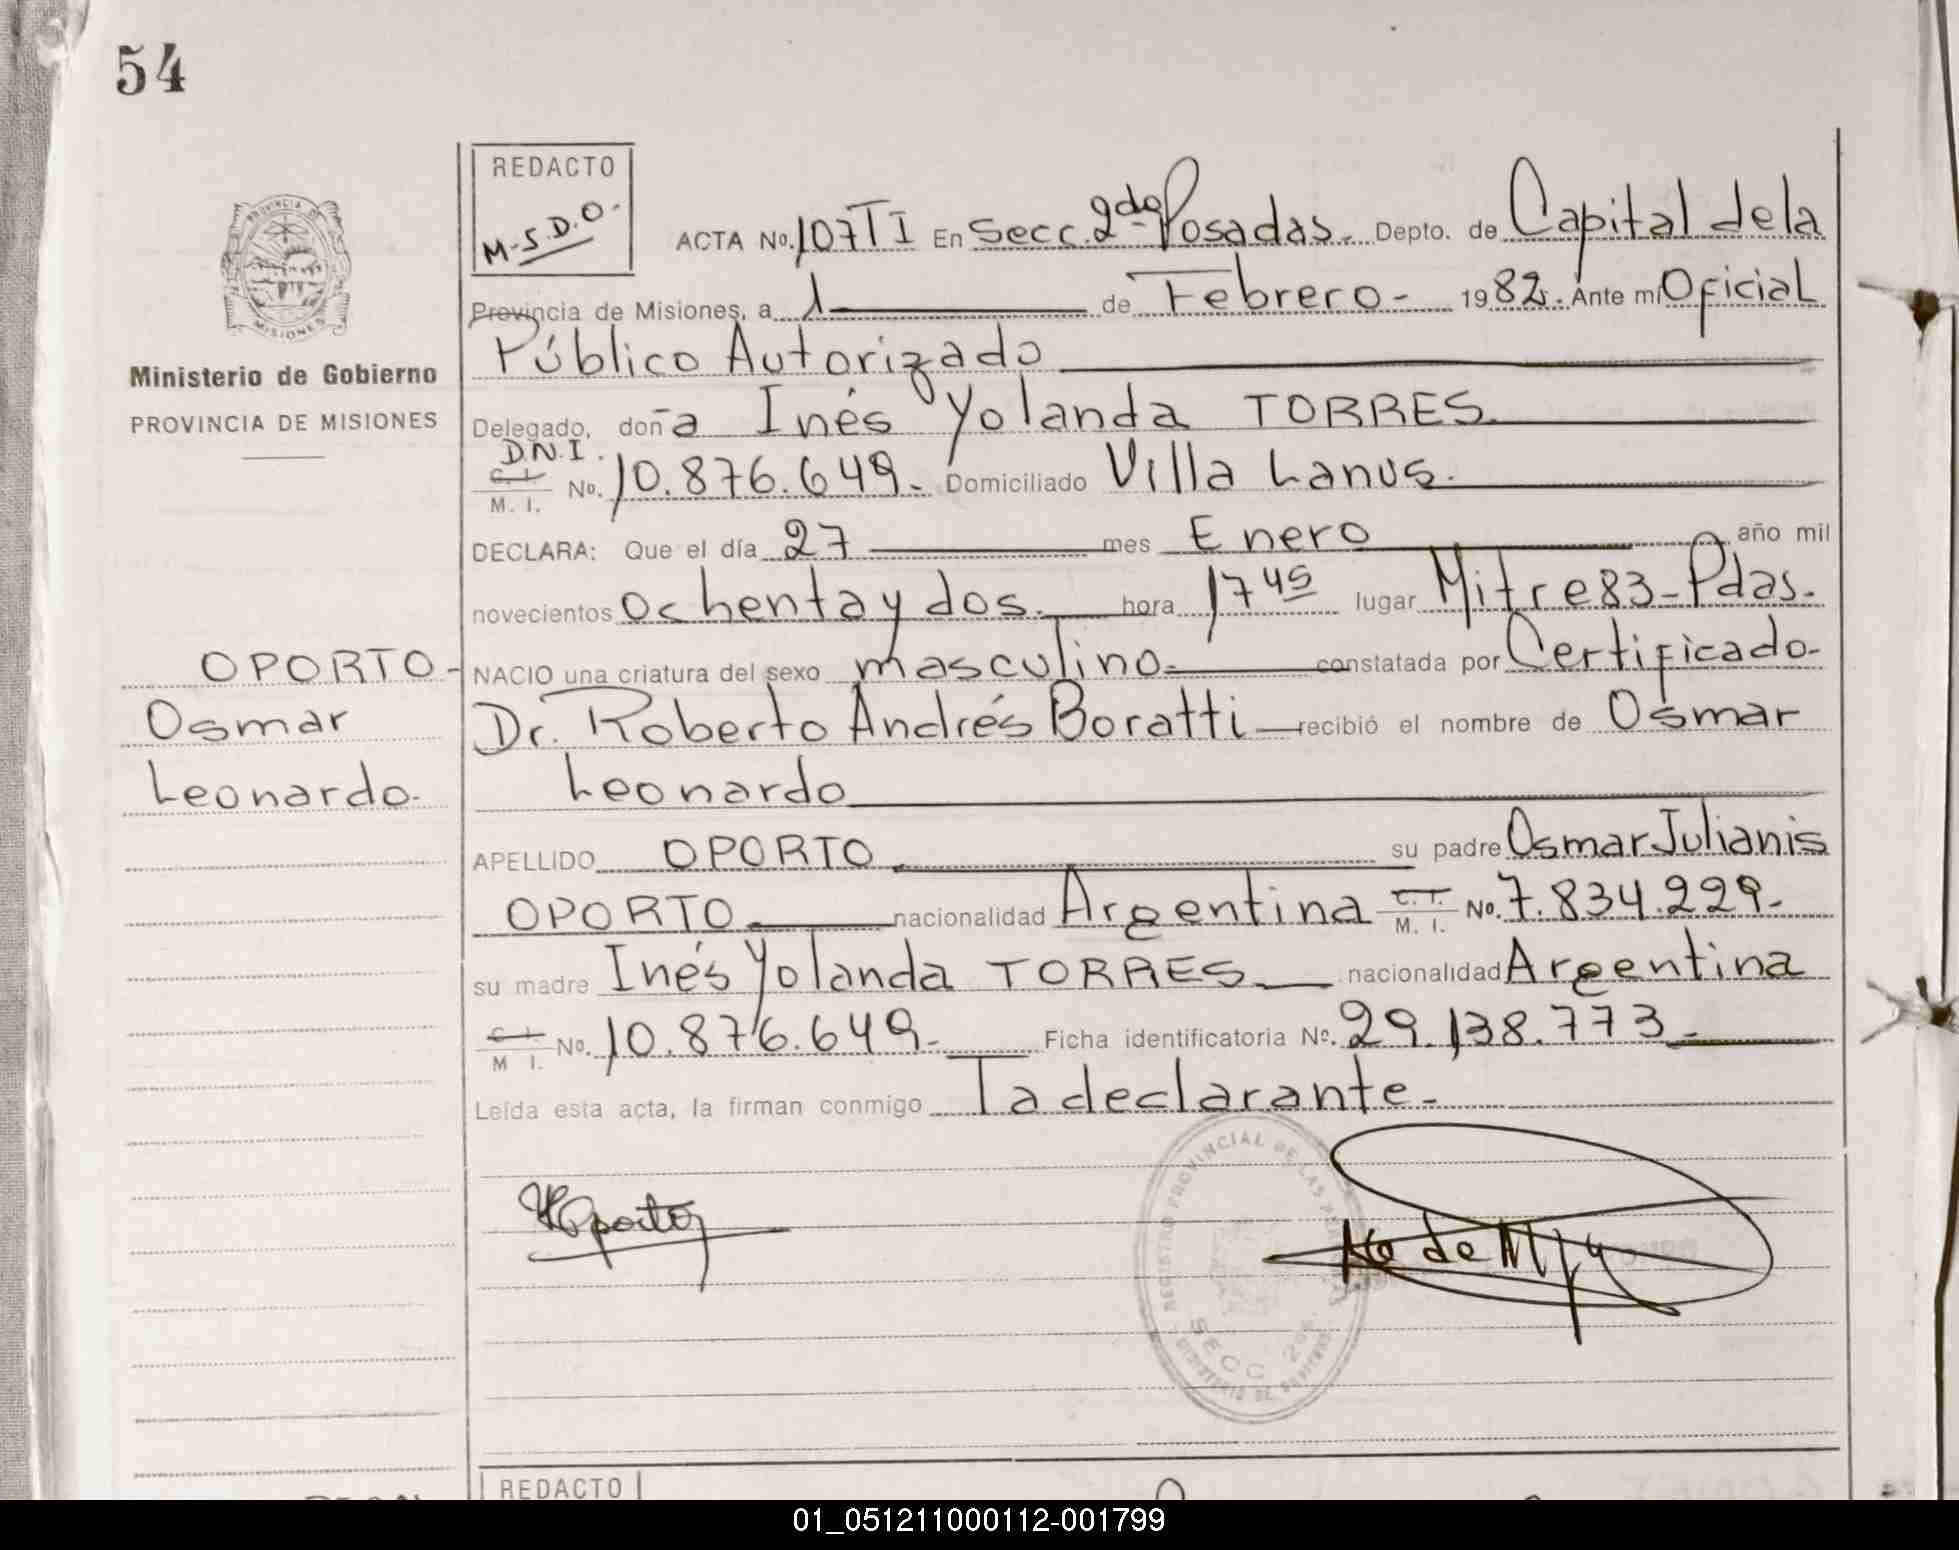 54
REDACTO
M-S.D.O-
ACTA No. 107 TI En Secc. 2da Posadas. Depto. de Capital de la
Provincia de Misiones, a 1 de Febrero - 1982. Ante mi Oficial
Público Autorizado
Delegado, doña Inés Yolanda TORRES
D.N.I.
C. I.
M. I. No. 10.876.649. Domiciliado Villa Lanus.
DECLARA: Que el día 27 mes Enero año mil
novecientos ochenta y dos. hora 17 45 lugar Mitre 83 - Pdas.
NACIO una criatura del sexo masculino constatada por Certificado
Dr. Roberto Andrés Boratti recibió el nombre de Osmar
Leonardo
APELLIDO OPORTO su padre Osmar Julianis
OPORTO nacionalidad Argentina C. I. M. I. No. 7.834.229.
su madre Inés Yolanda TORRES nacionalidad Argentina
C. I. M. I. No. 10.876.649. Ficha identificatoria No. 29.138.773
Leída esta acta, la firman conmigo la declarante.
Ministerio de Gobierno
PROVINCIA DE MISIONES
OPORTO
Osmar
Leonardo.
PROVINCIA DE
MISIONES
REGISTRO PROVINCIAL DE LAS
SECC. 2da.
MINISTERIO DE GOBIERNO
REDACTO
01_051211000112-001799